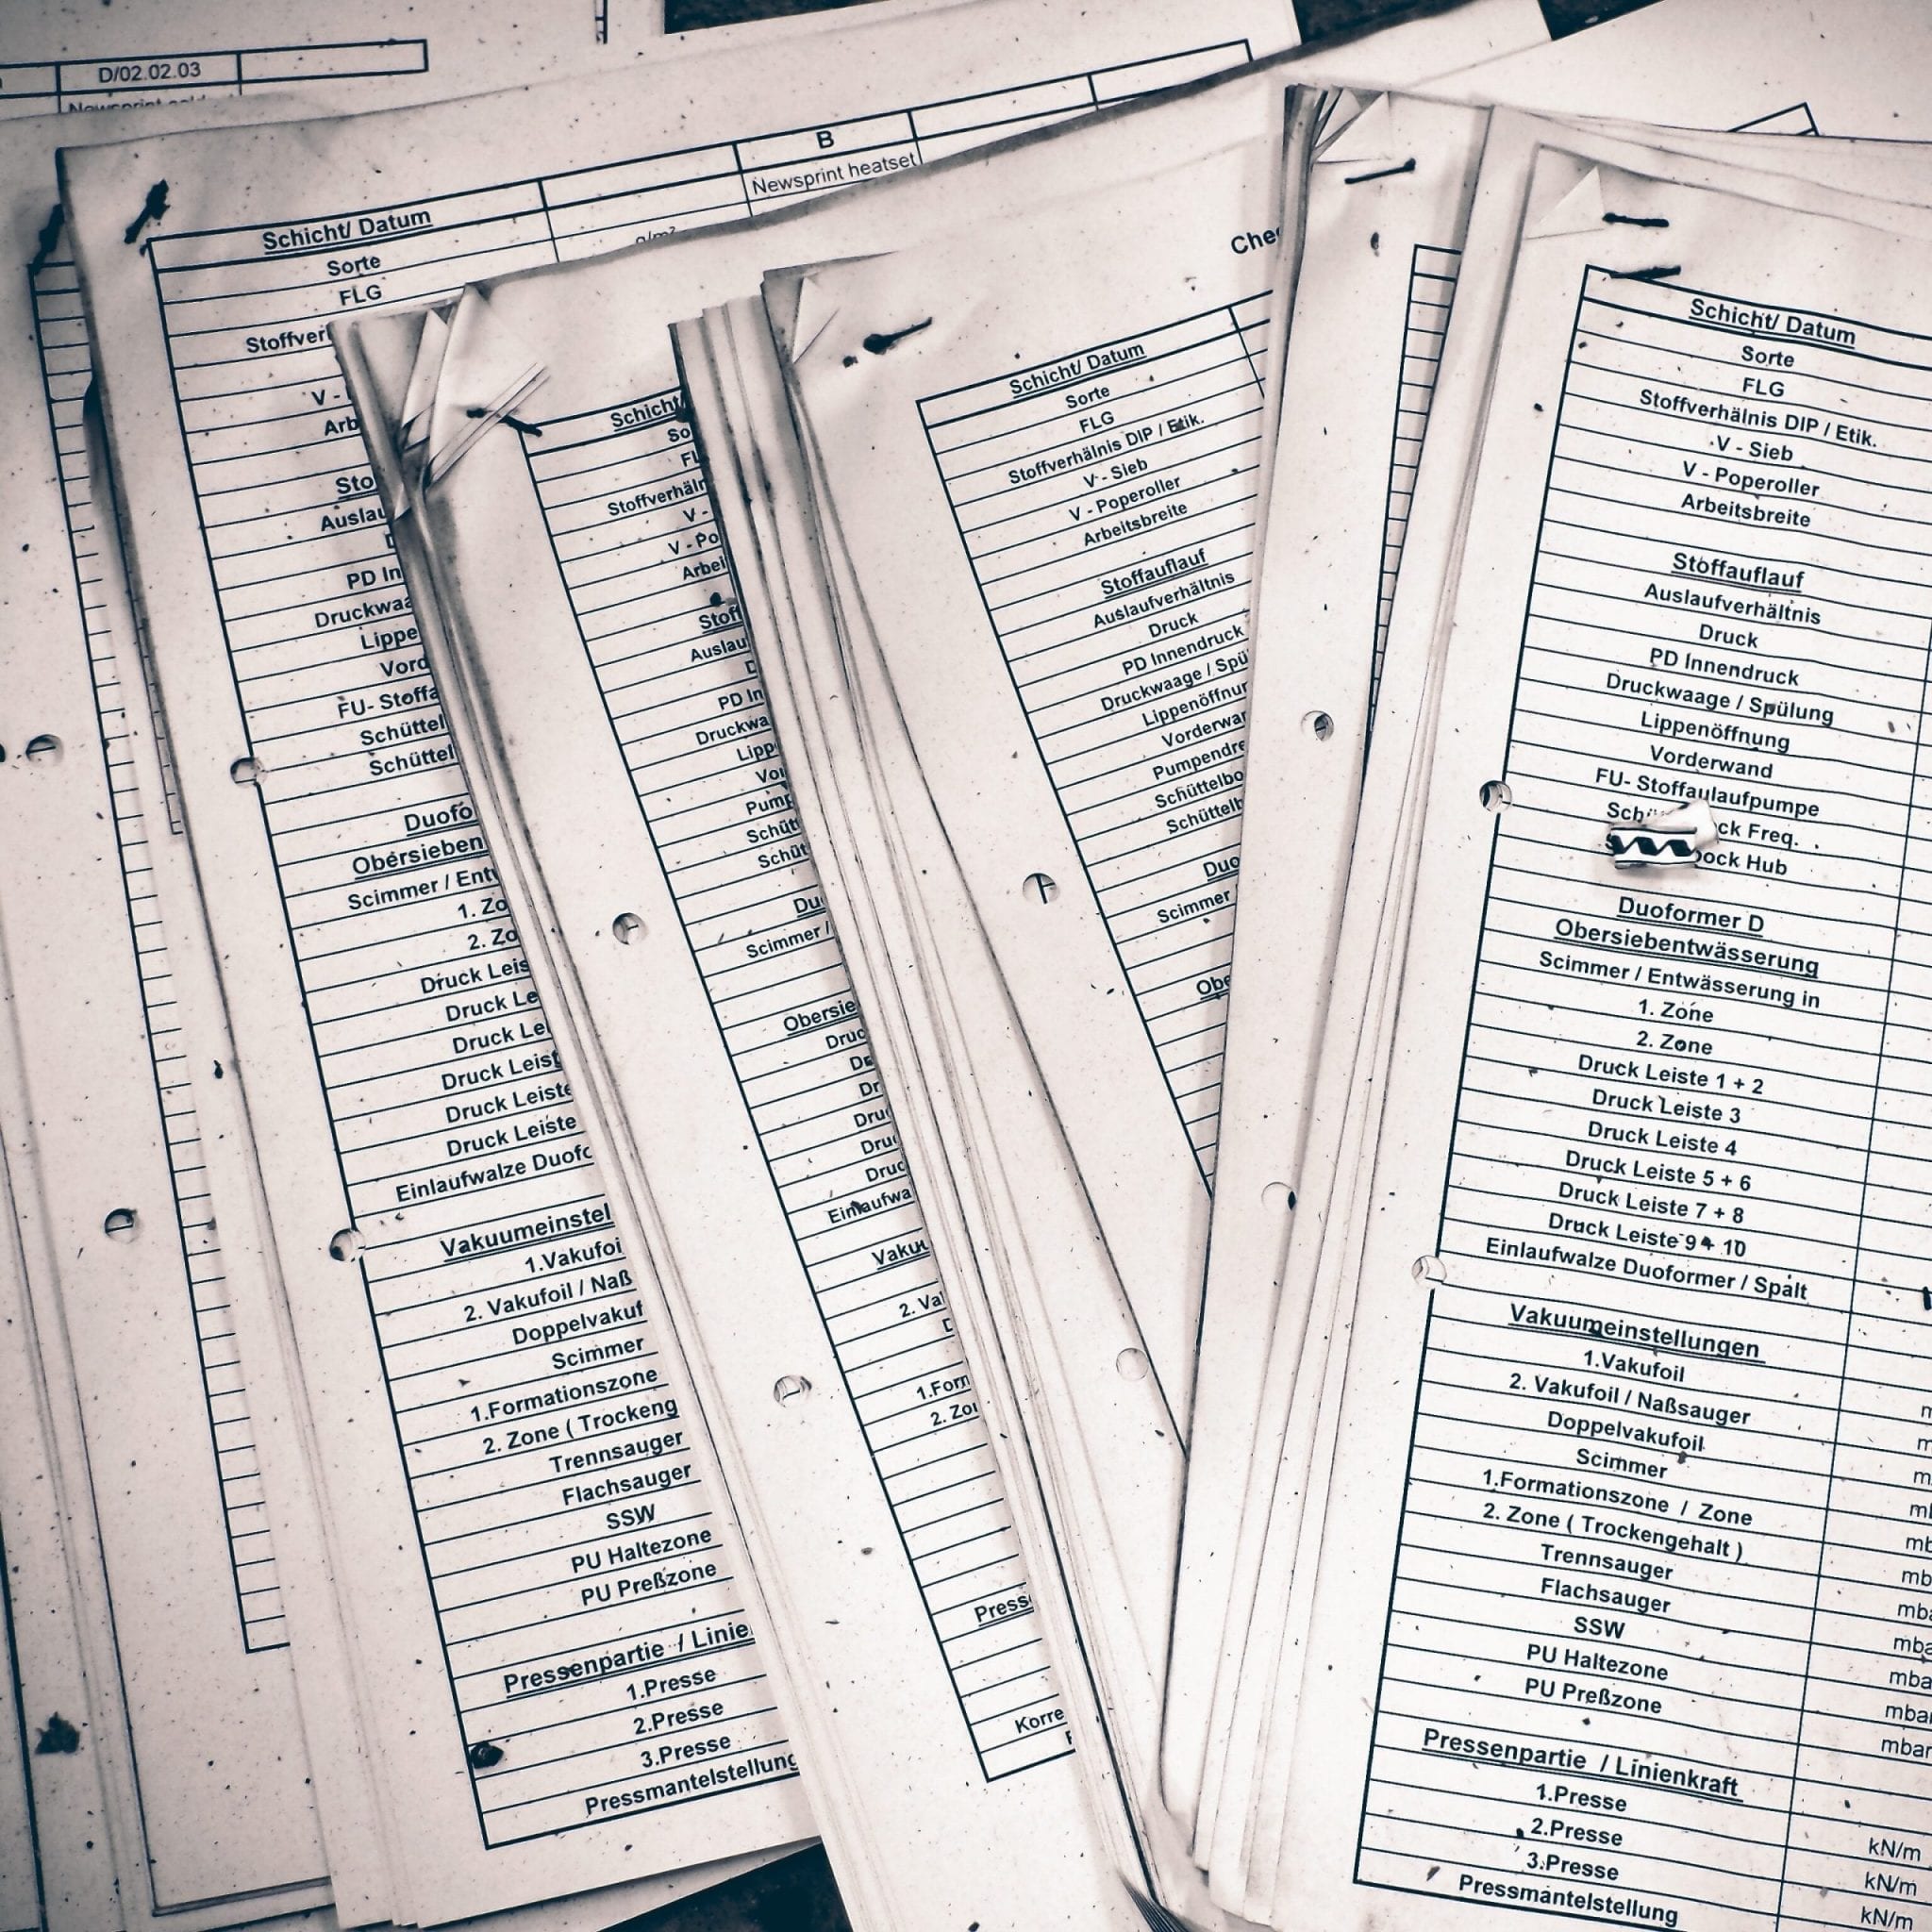 D/02.02.03
B
Newsprint heatset
Schicht/ Datum
Sorte
FLG
g/m²
Stoffver
V -
Arb
Sto
Auslau
PD In
Druckwaa
Lippe
Vord
FU- Stoffa
Schüttel
Schüttel
Duofo
Obersieben
Scimmer / Ent
1. Zo
2. Zo
Druck Leis
Druck Le
Druck Lei
Druck Leist
Druck Leiste
Druck Leiste
Einlaufwalze Duofo
Vakuumeinstel
1.Vakufoi
2. Vakufoil / Naß
Doppelvakuf
Scimmer
1.Formationszone
2. Zone ( Trockeng
Trennsauger
Flachsauger
SSW
PU Haltezone
PU Preßzone
Pressenpartie / Linie
1.Presse
2.Presse
3.Presse
Pressmantelstellung
Schicht
So
FL
Stoffverhäln
V -
V - Po
Arbei
Stoff
Auslau
D
PD In
Druckwa
Lipp
Vor
Pump
Schütt
Schüt
Du
Scimmer /
Obersie
Druc
De
Dr
Druc
Druc
Druc
Einlaufwa
Vakuu
2. Va
D
1.Form
2. Zon
Press
Korre
Chec
Schicht/ Datum
Sorte
FLG
Stoffverhälnis DIP / Etik.
V - Sieb
V - Poperoller
Arbeitsbreite
Stoffauflauf
Auslaufverhältnis
Druck
PD Innendruck
Druckwaage / Spü
Lippenöffnur
Vorderwar
Pumpendre
Schüttelbo
Schüttelb
Duo
Scimmer
Obe
Schicht/ Datum
Sorte
FLG
Stoffverhälnis DIP / Etik.
V - Sieb
V - Poperoller
Arbeitsbreite
Stoffauflauf
Auslaufverhältnis
Druck
PD Innendruck
Druckwaage / Spülung
Lippenöffnung
Vorderwand
FU- Stoffaulaufpumpe
Sch ck Freq.
ock Hub
Duoformer D
Obersiebentwässerung
Scimmer / Entwässerung in
1. Zone
2. Zone
Druck Leiste 1 + 2
Druck Leiste 3
Druck Leiste 4
Druck Leiste 5 + 6
Druck Leiste 7 + 8
Druck Leiste 9 + 10
Einlaufwalze Duoformer / Spalt
Vakuumeinstellungen
1.Vakufoil
2. Vakufoil / Naßsauger
Doppelvakufoil
Scimmer
1.Formationszone / Zone
2. Zone ( Trockengehalt )
Trennsauger
Flachsauger
SSW
PU Haltezone
PU Preßzone
mbar
Pressenpartie / Linienkraft
1.Presse kN/m
2.Presse kN/m
3.Presse kN/m
Pressmantelstellung